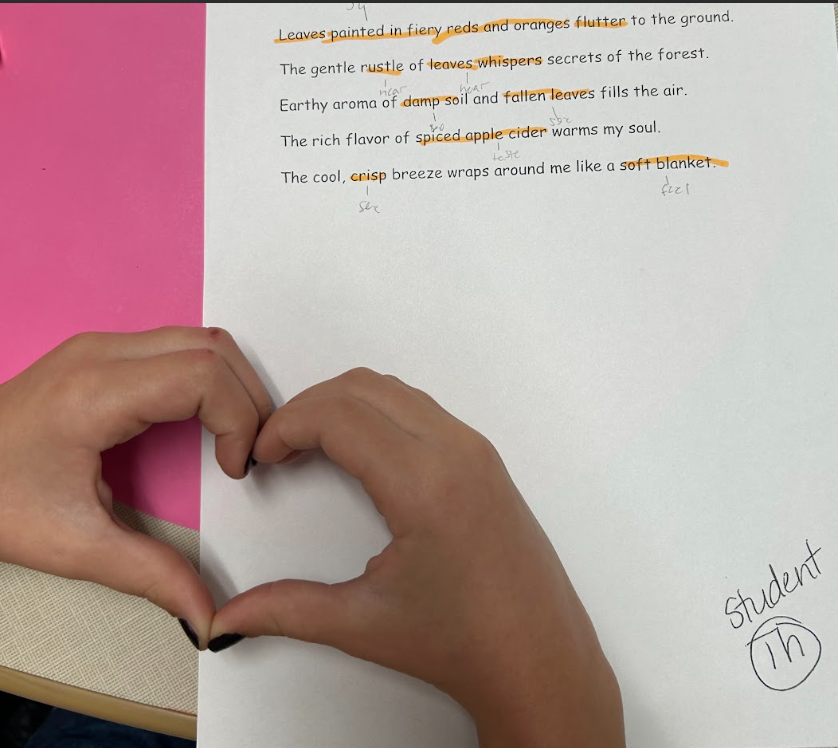 Leaves painted in fiery reds and oranges flutter to the ground.
The gentle rustle of leaves whispers secrets of the forest.
hear hear
Earthy aroma of damp soil and fallen leaves fills the air.
The rich flavor of spiced apple cider warms my soul.
taste
The cool, crisp breeze wraps around me like a soft blanket.
feel
student
1h